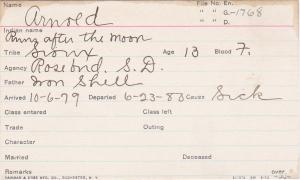 Name File No. En.
Arnold " a-1768
Indian name " D.
Runs after the Moon
Tribe Sioux Age 13 Blood F.
Agency Rosebud. S. D.
Father Iron Shell
Arrived 10-6-79 Departed 6-23-83 Cause Sick
Class entered Class left
Trade Outing
Character
Married Deceased
Remarks over